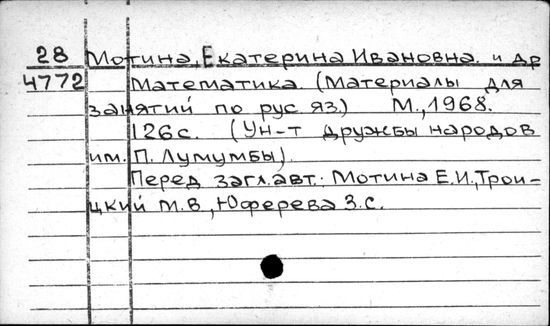 28 Мотина, Екатерина Ивановна и др
4772 Математика. (Материалы для
занятий по рус яз.) М., 1968.
126с. (Ун-т дружбы народов
им. П. Лумумбы).
Перед загл. авт.: Мотина Е.И., Трои-
цкий М.В., Юферева З.С.